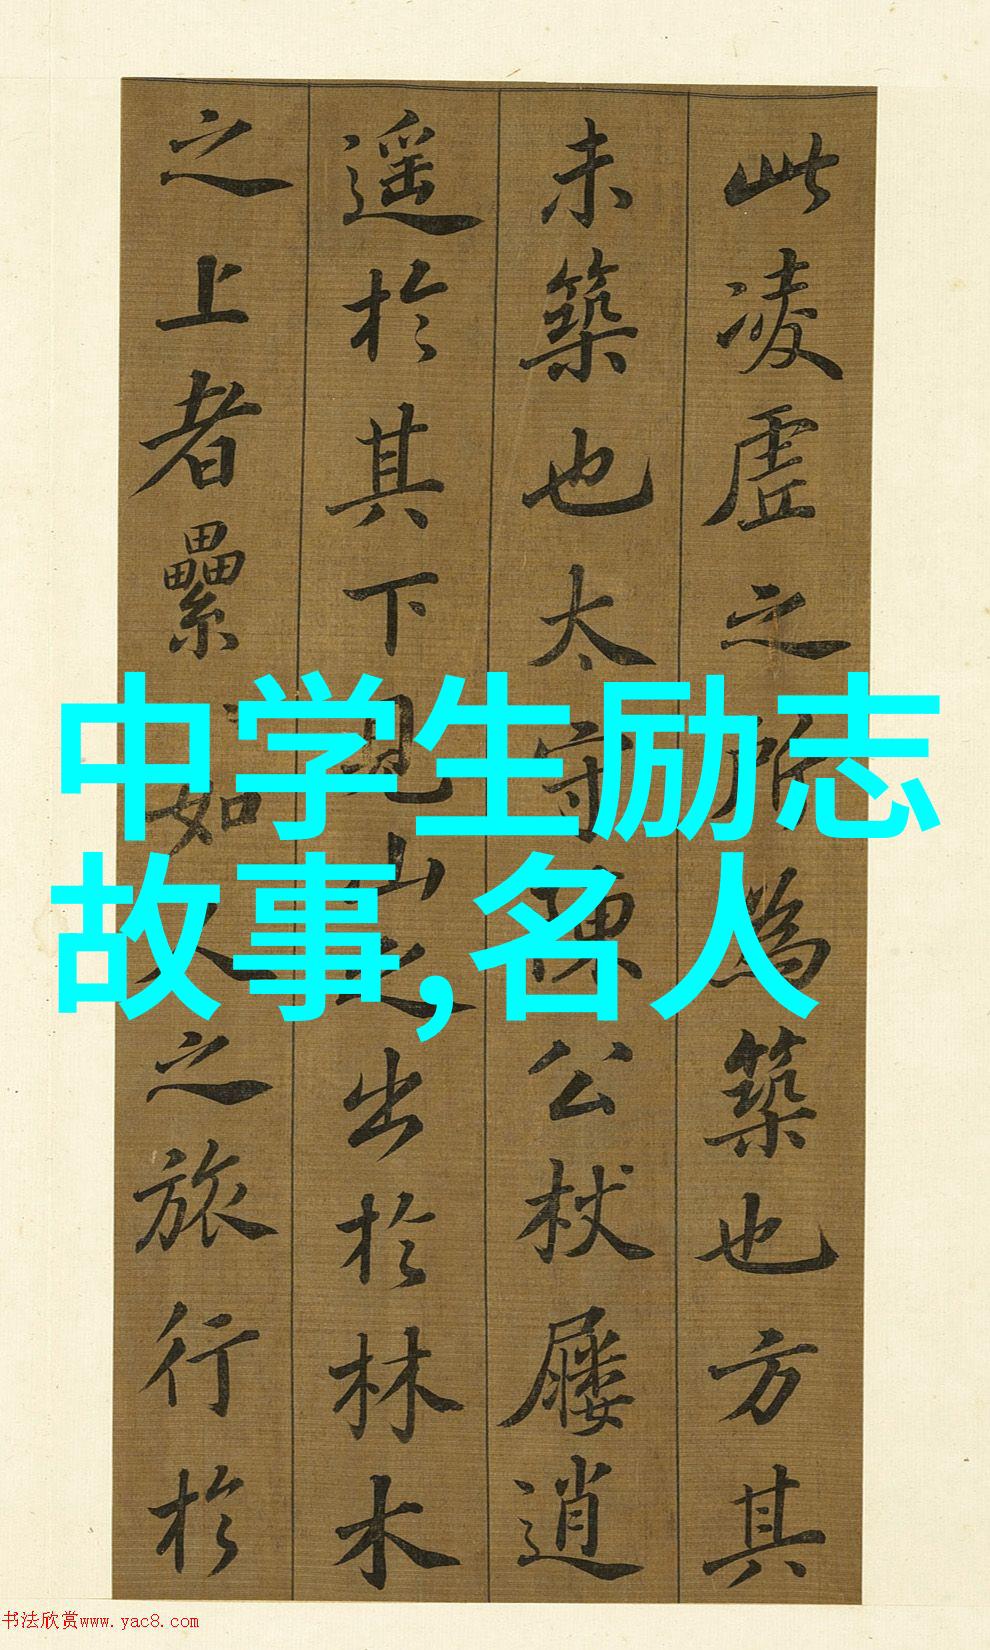 此凌虛之所為築也方其
未築也太守陳公杖屨逍
遥於其下見山之出於林木
之上者纍〻如人之旅行於
中学生励志
故事,名人
书法欣赏www.yac8.com